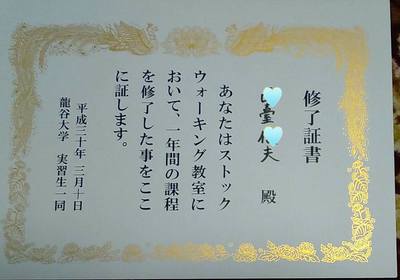 修了証書
臺 夫 殿
あなたはストック
ウォーキング教室に
おいて、一年間の課程
を修了した事をここ
に証します。
平成三十年 三月十日
龍谷大学 実習生一同